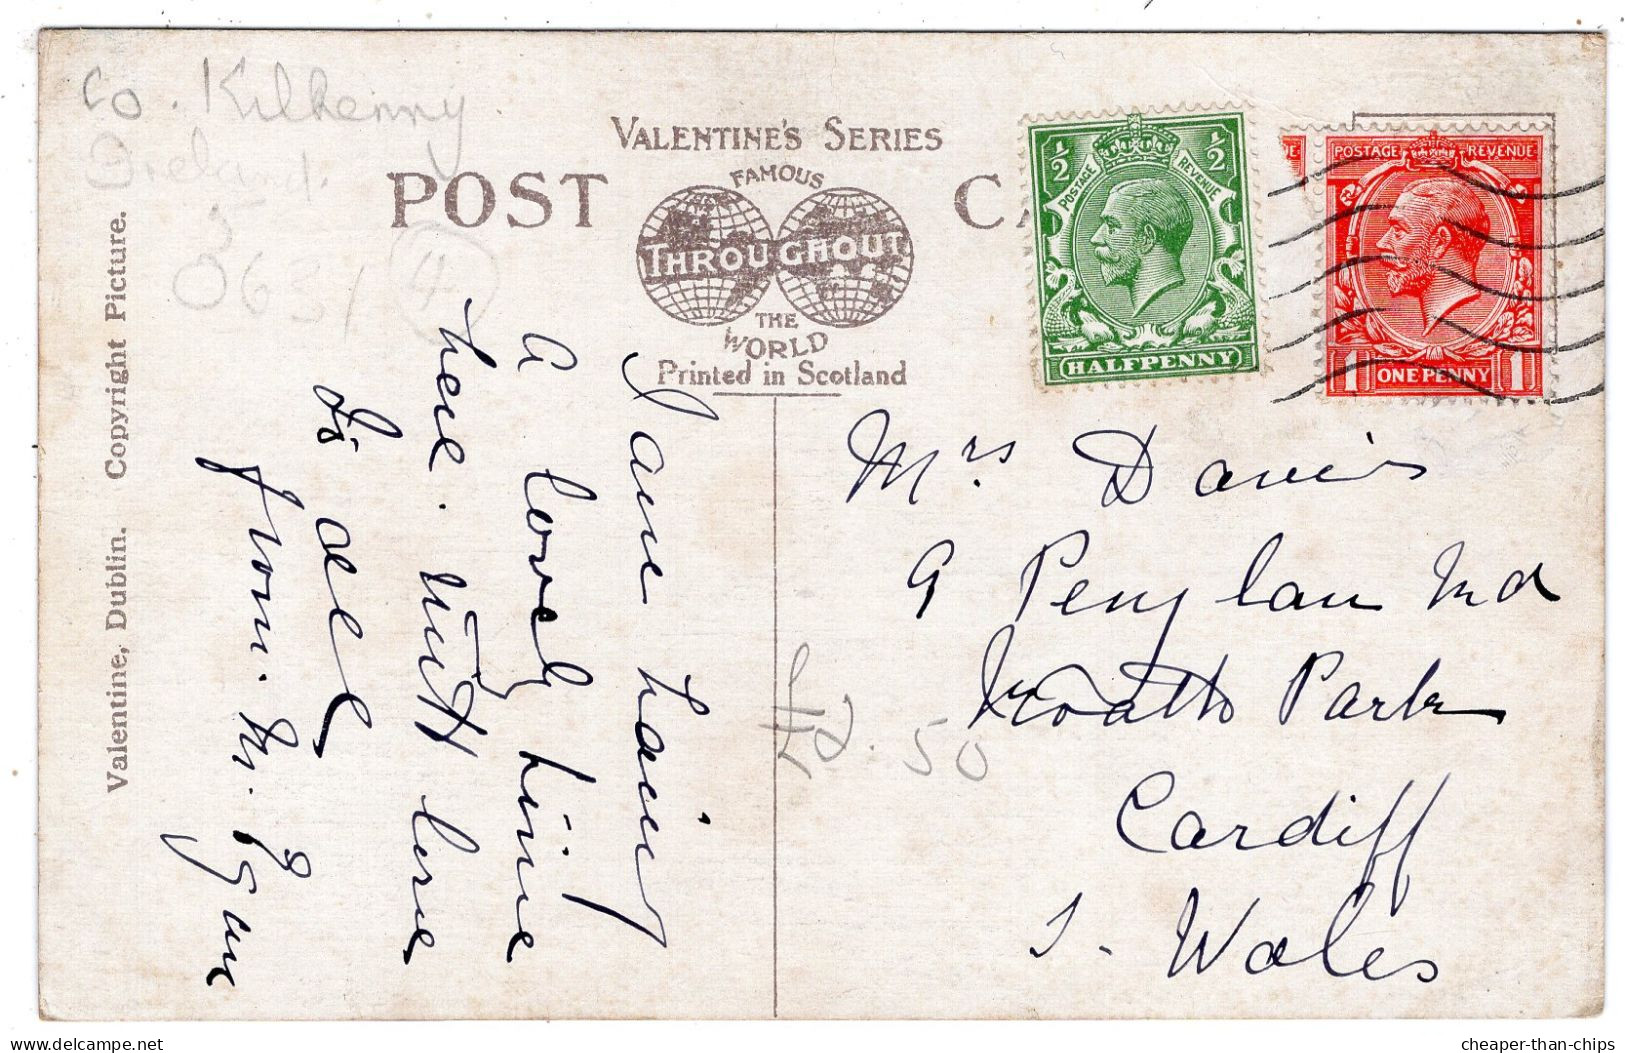 Co. Kilkenny
Ireland.
VALENTINE'S SERIES
POST CA
FAMOUS
THROUGHOUT
THE
WORLD
Printed in Scotland
Valentine, Dublin. Copyright Picture.
½ ½
POSTAGE REVENUE
HALFPENNY
POSTAGE REVENUE
1 ONE PENNY 1
I am having
a lovely time
here. With love
to all
from. M. Egan
Mrs Davis
9 Penylan Rd
Roath Park
Cardiff
S. Wales
42.50
delcampe.net
cheaper-than-chips